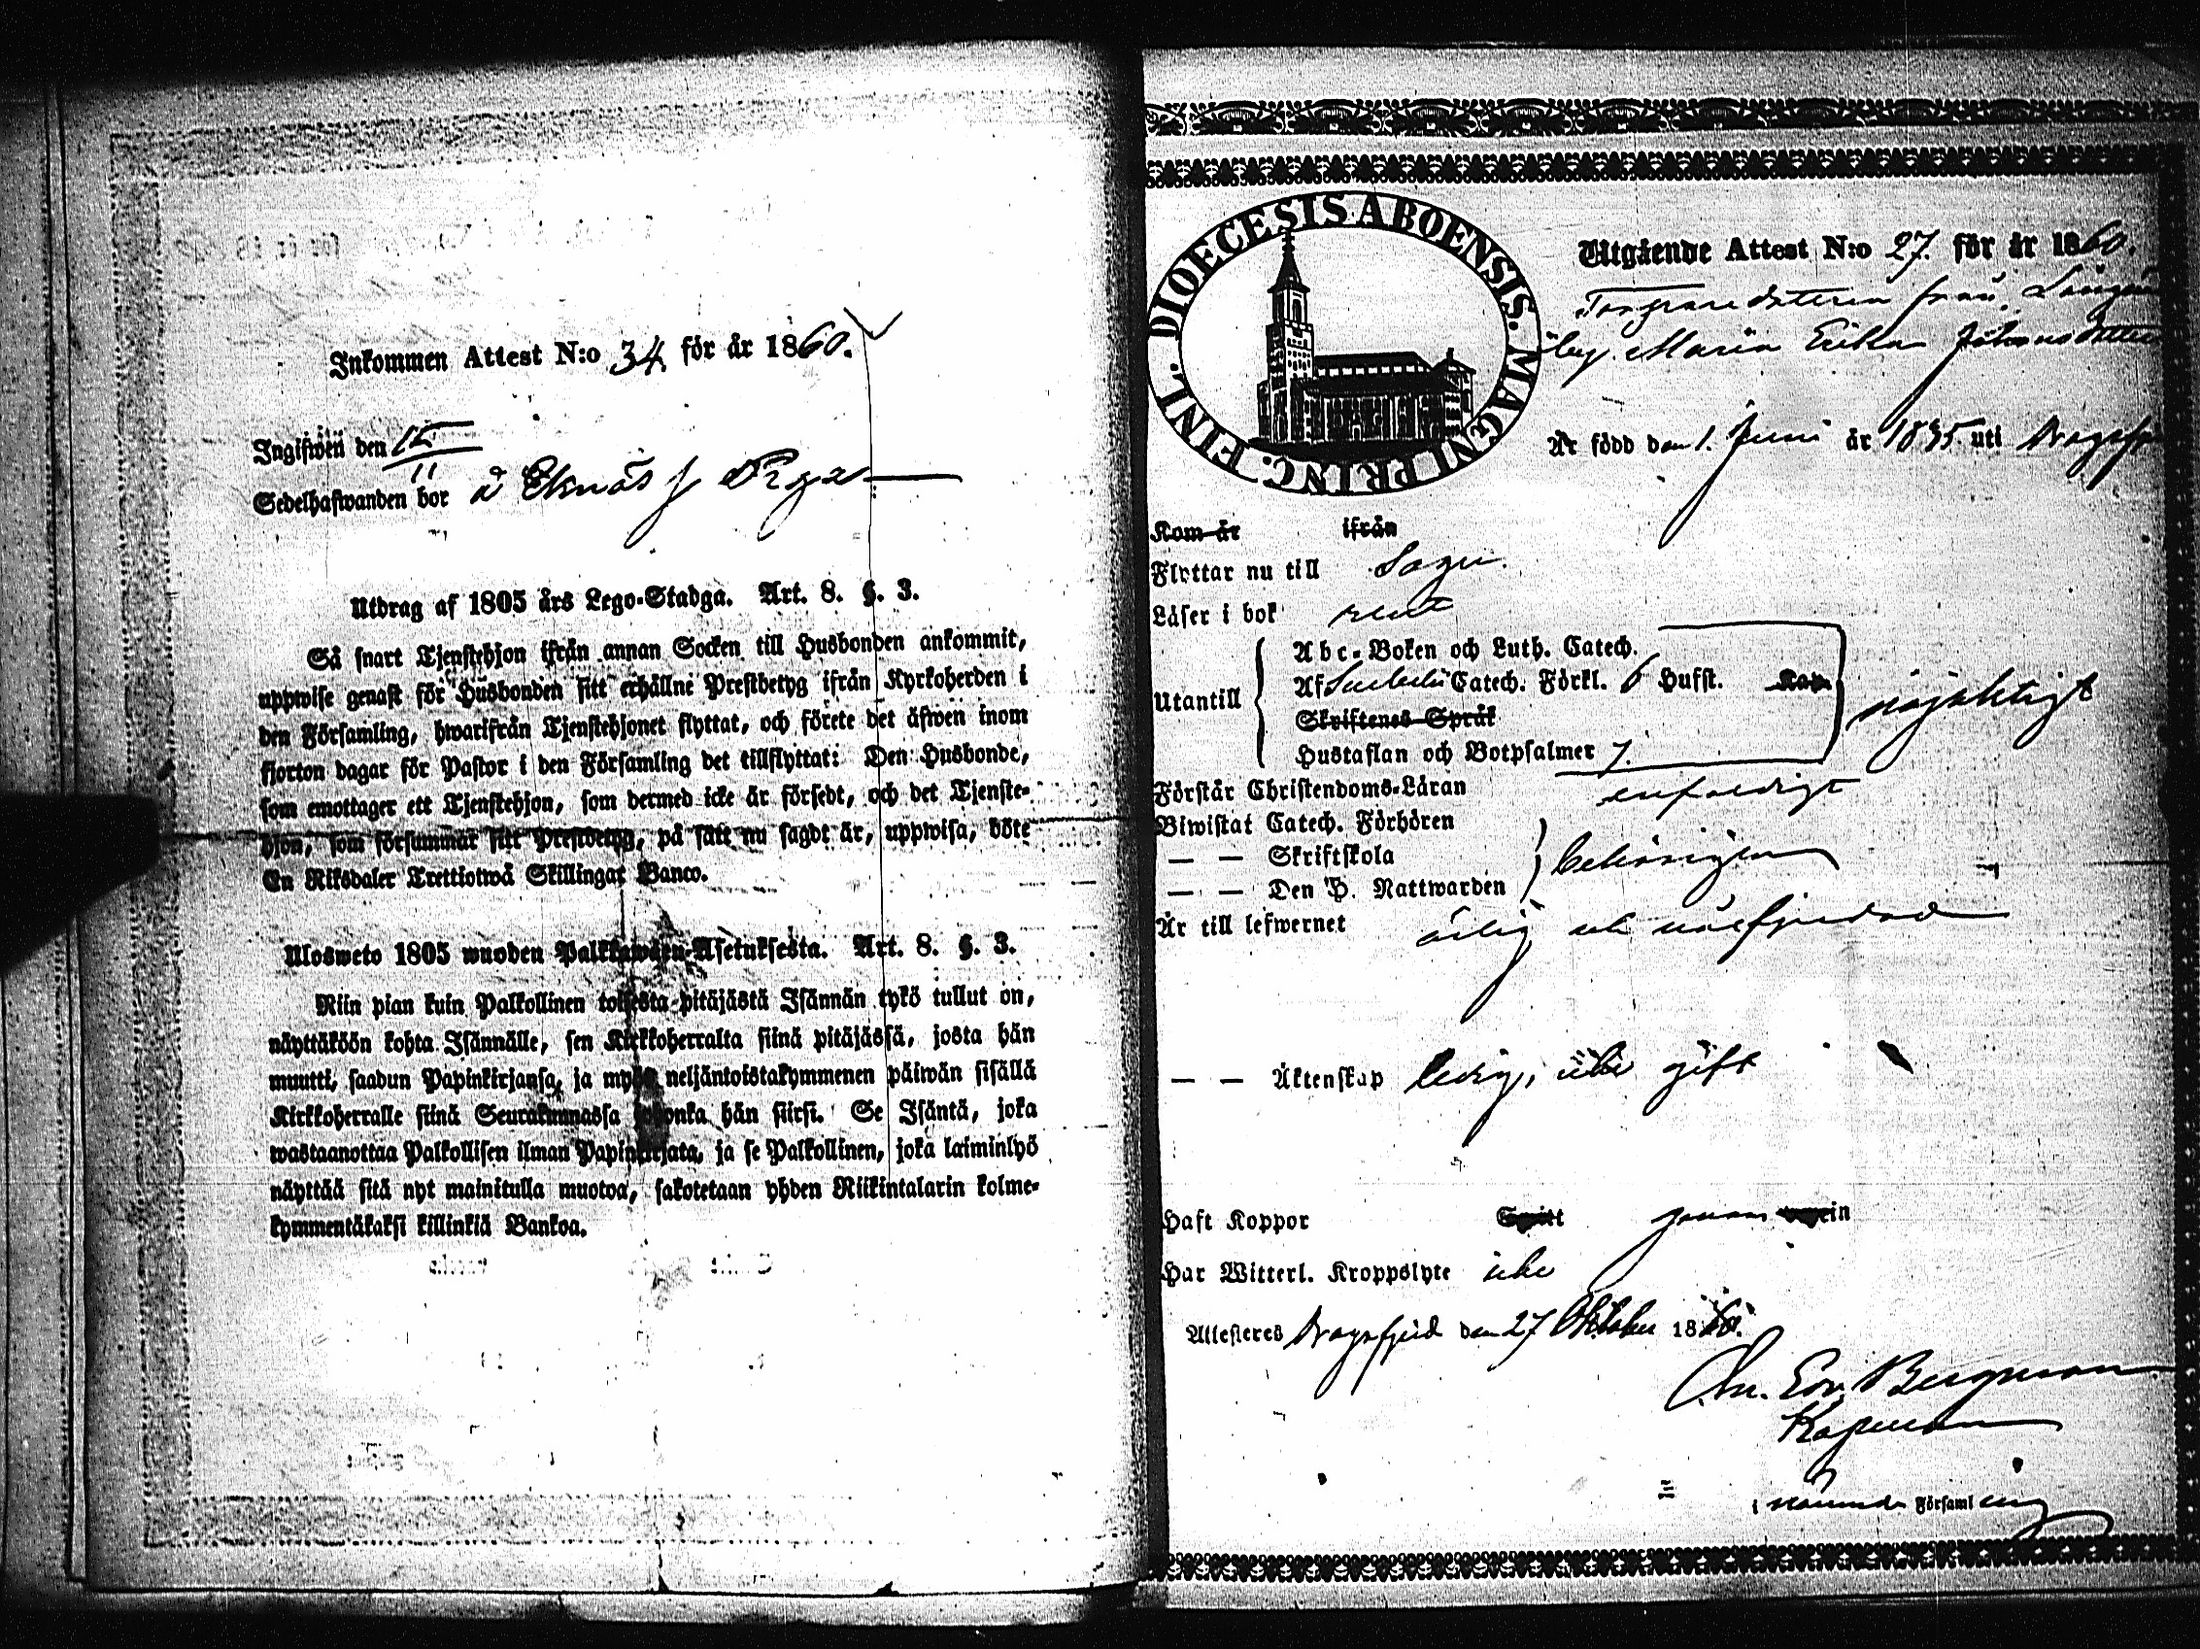 Inkommen Attest N:o 34 för år 1860.
Ingifwen den 15/11
Sedelhafwanden bor å Eknäs
Utdrag af 1805 års Lego-Stadga. Art. 8. §. 3.
Så snart Tjenstehjon ifrån annan Socken till Husbonden ankommit,
uppwise genast för Husbonden sitt erhållne Prestbetyg ifrån Kyrkoherden i
den Församling, hwarifrån Tjenstehjonet flyttat, och förete det äfwen inom
fjorton dagar för Pastor i den Församling det tillflyttat: Den Husbonde,
som emottager ett Tjenstehjon, som dermed icke är försedt, och det Tjenste-
hjon, som försummar sitt Prestbetyg, på sätt nu sagdt är, uppwisa, böte
En Riksdaler Trettiotwå Skillingar Banco.
Ulosweto 1805 wuoden Palkkawäen-Asetuksesta. Art. 8. §. 3.
Niin pian kuin Palkollinen toisesta pitäjästä Isännän tykö tullut on,
näyttäköön kohta Isännälle, sen Kirkkoherralta siinä pitäjässä, josta hän
muutti, saadun Papinkirjansa, ja myös neljäntoistakymmenen päiwän sisällä
Kirkkoherralle siinä Seurakunnassa johonka hän siirsi. Se Isäntä, joka
wastaanottaa Palkollisen ilman Papinkirjata, ja se Palkollinen, joka laiminlyö
näyttää sitä nyt mainitulla muotoa, sakotetaan yhden Riikintalarin kolme-
kymmentäkaksi killinkiä Bankoa.
DIOECESIS ABOENSIS. MAGNI PRINC. FINL.
Utgående Attest N:o 27. för år 1860.
från
Maria Erika Johansdotter
Är född den 1. Juni år 1835 uti Dragsfj
Kom år ifrån
Flyttar nu till Sagu.
Läser i bok rent
Utantill
Abc-Boken och Luth. Catech.
Af Svebelii Catech. Förkl. 6 Hufst. Kap.
Skriftenes Språk
Hustaflan och Botpsalmer 7.
nöjaktigt
Förstår Christendoms-Läran enfaldigt
Biwistat Catech. Förhören
— — Skriftskola
— — Den H. Nattwarden
behörigen
Är till lefwernet ärlig och oberyktad
— — Äktenskap ledig, icke gift
Haft Koppor genom
Har Witterl. Kroppslyte icke
Attesteres Dragsfjerd den 27 Oktober 1860.
Edv. Bergman
Kapellan
i nämnde Församling